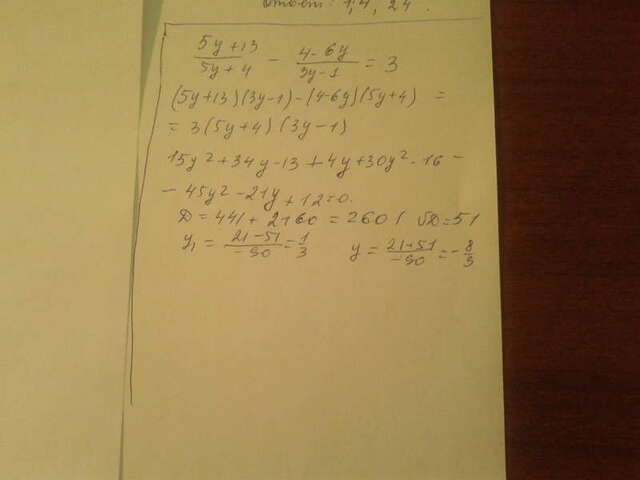 Ответ: 1,4, 24.
(5y+13)/(5y+4) - (4-6y)/(3y-1) = 3
(5y+13)(3y-1)-(4-6y)(5y+4) =
= 3(5y+4)(3y-1)
15y²+34y-13+4y+30y²-16-
-45y²-21y+12=0.
D=441+2160=2601 √D=51
y₁ = (21-51)/(-90) = 1/3 y = (21+51)/(-90) = -8/3